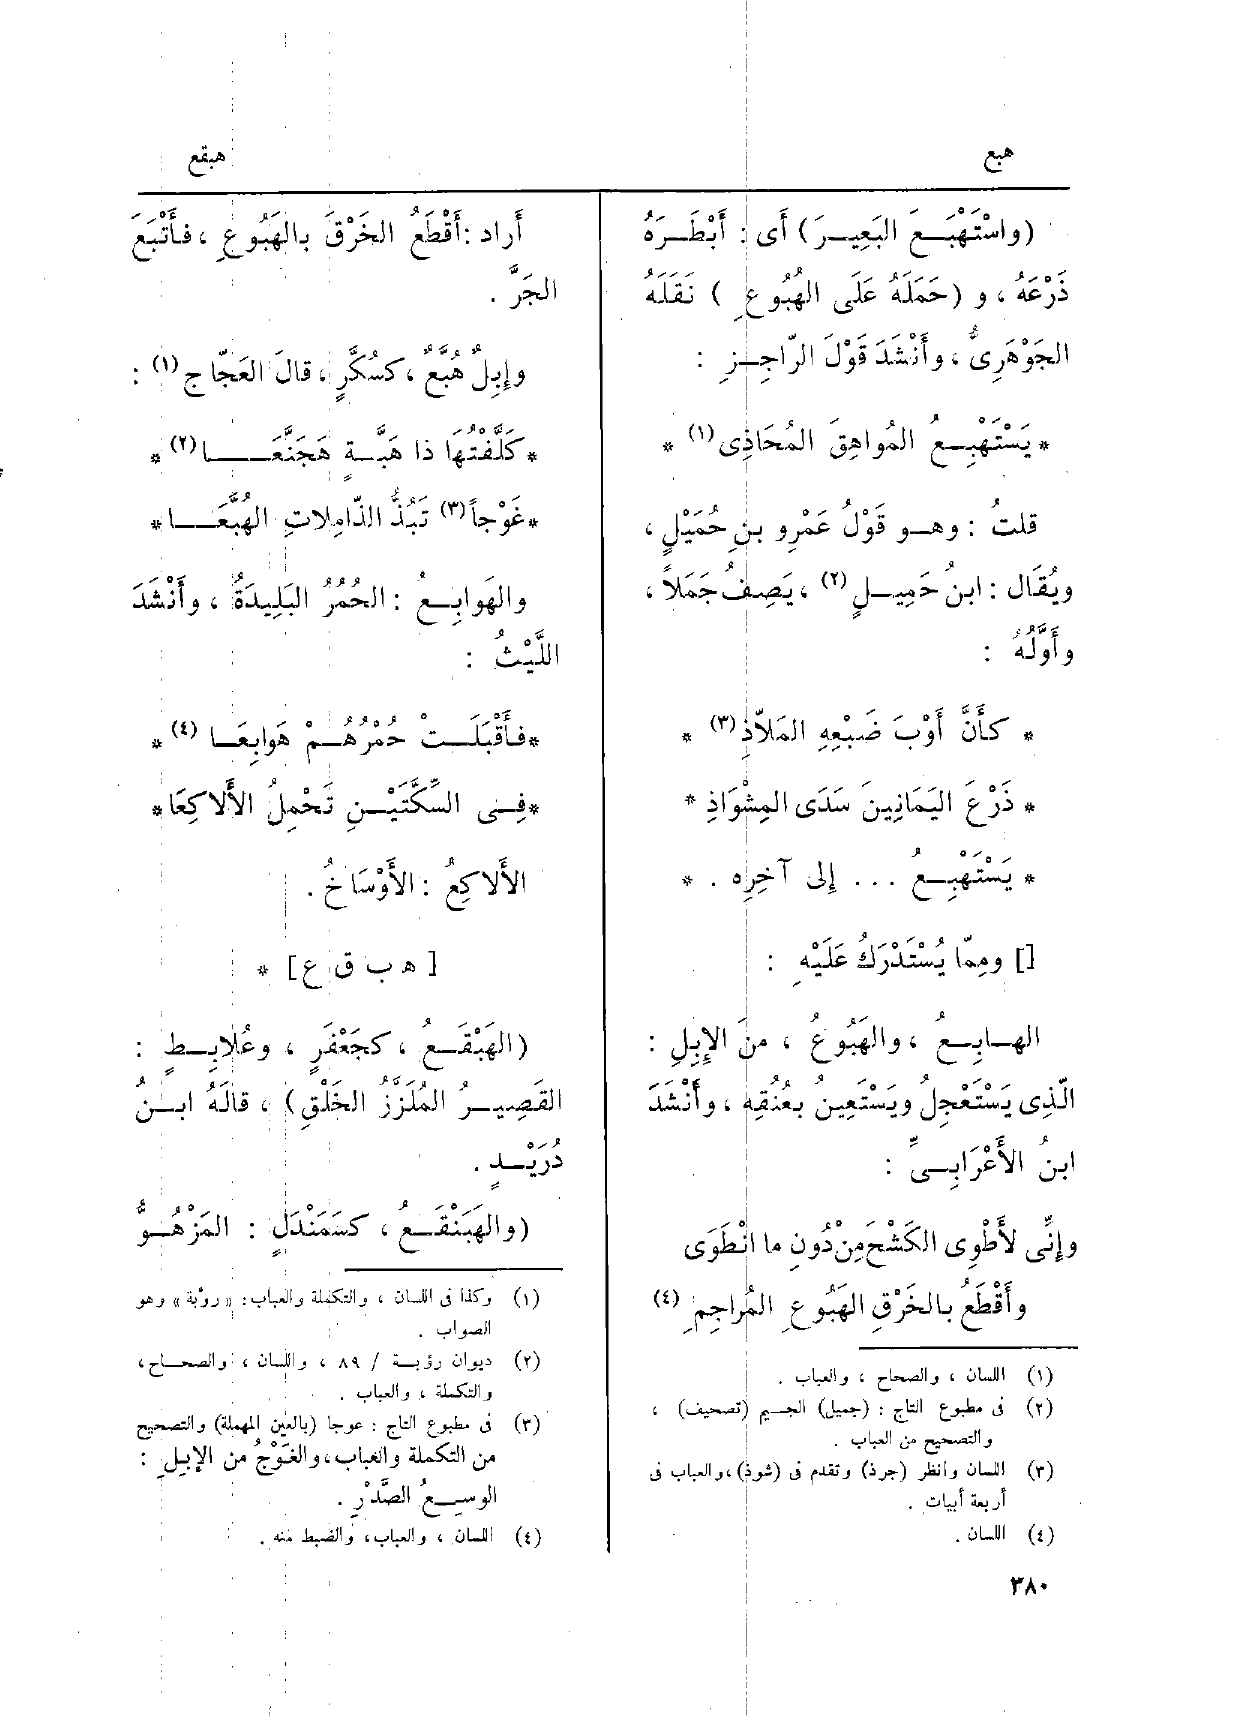 هبع
هبقع
(واسْتَهْبَـعَ البَعِيـرَ) أَى : أَبْطَـرَهُ
ذَرْعَهُ ، و (حَمَلَهُ عَلَى الهُبُوعِ ) نَقَلَهُ
الجَوْهَرِىُّ ، وأَنْشَدَ قَوْلَ الرّاجِـزِ :
* يَسْتَهْبِـعُ المُواهِقَ المُحَاذِى (١) *
قلتُ : وهـو قَوْلُ عَمْرِو بنِ حُمَيْلٍ ،
ويُقَال : ابنُ حَمِيـلٍ (٢) ، يَصِفُ جَمَلاً ،
وأَوَّلُهُ :
* كأَنَّ أَوْبَ ضَبْعِهِ المَلاّذِ (٣) *
* ذَرْعَ اليَمَانِينَ سَدَى المِشْوَاذِ *
* يَسْتَهْبِـعُ ... إلى آخِرِه . *
[] ومِمّا يُسْتَدْرَكُ عَلَيْهِ :
الهـابِـعُ ، والهَبُوعُ ، منَ الإِبِلِ :
الَّذِى يَسْتَعْجِلُ ويَسْتَعِينُ بعُنُقِهِ ، وأَنْشَدَ
ابنُ الأَعْرَابِـىِّ :
وإِنِّى لأَطْوِى الكَشْحَ مِنْ دُونِ ما انْطَوَى
وأَقْطَعُ بالخَرْقِ الهَبُوعِ المُراجِمِ (٤)
(١) اللسان ، والصحاح ، والعباب .
(٢) فى مطبوع التاج : (جميل) الجـيم (تصحيف) ،
والتصحيح من العباب .
(٣) اللسان وأنظر (جرذ) وتقدم فى (شوذ) ، والعباب فى
أربعة أبيات .
(٤) اللسان .
٣٨٠
أَراد : أَقْطَعُ الخَرْقَ بالهَبُوعِ ، فأَتْبَعَ
الجَرَّ .
وإِبِلٌ هُبَّعٌ ، كسُكَّرٍ ، قالَ العَجّاج (١) :
*كَلَّفْتُها ذا هَبَّـةٍ هَجَنَّعَــا (٢) *
*غَوْجاً (٣) تَبُذُّ الذّامِلاتِ الهُبَّعَــا*
والهَوابِـعُ : الحُمُرُ البَلِيدَةُ ، وأَنْشَدَ
اللَّيْثُ :
*فأَقْبَلَـتْ حُمْرُهُـمْ هَوابِعَـا (٤) *
*فِـى السِّكَّتَيْـنِ تَحْمِلُ الأَلاكِعَا*
الأَلاكِعُ : الأَوْسَاخُ .
[ ه ب ق ع ] *
(الهَبْقَـعُ ، كجَعْفَرٍ ، وعُلابِـطٍ :
القَصِيـرُ المُلَزَّزُ الخَلْقِ) ، قالَهُ ابـنُ
دُرَيْـدٍ .
(والهَبَنْقَـعُ ، كسَمَنْدَلٍ : المَزْهُـوُّ
(١) وكذا فى اللسان ، والتكملة والعباب : « رؤبة » وهو
الصواب .
(٢) ديوان رؤبـة / ٨٩ ، واللسان ، والصحـاح ،
والتكملة ، والعباب .
(٣) فى مطبوع التاج : عوجا (بالعين المهملة) والتصحيح
من التكملة والعباب ، والغَوْجُ من الإبِلِ :
الوسِـعُ الصَّدْرِ .
(٤) اللسان ، والعباب ، والضبط منه .